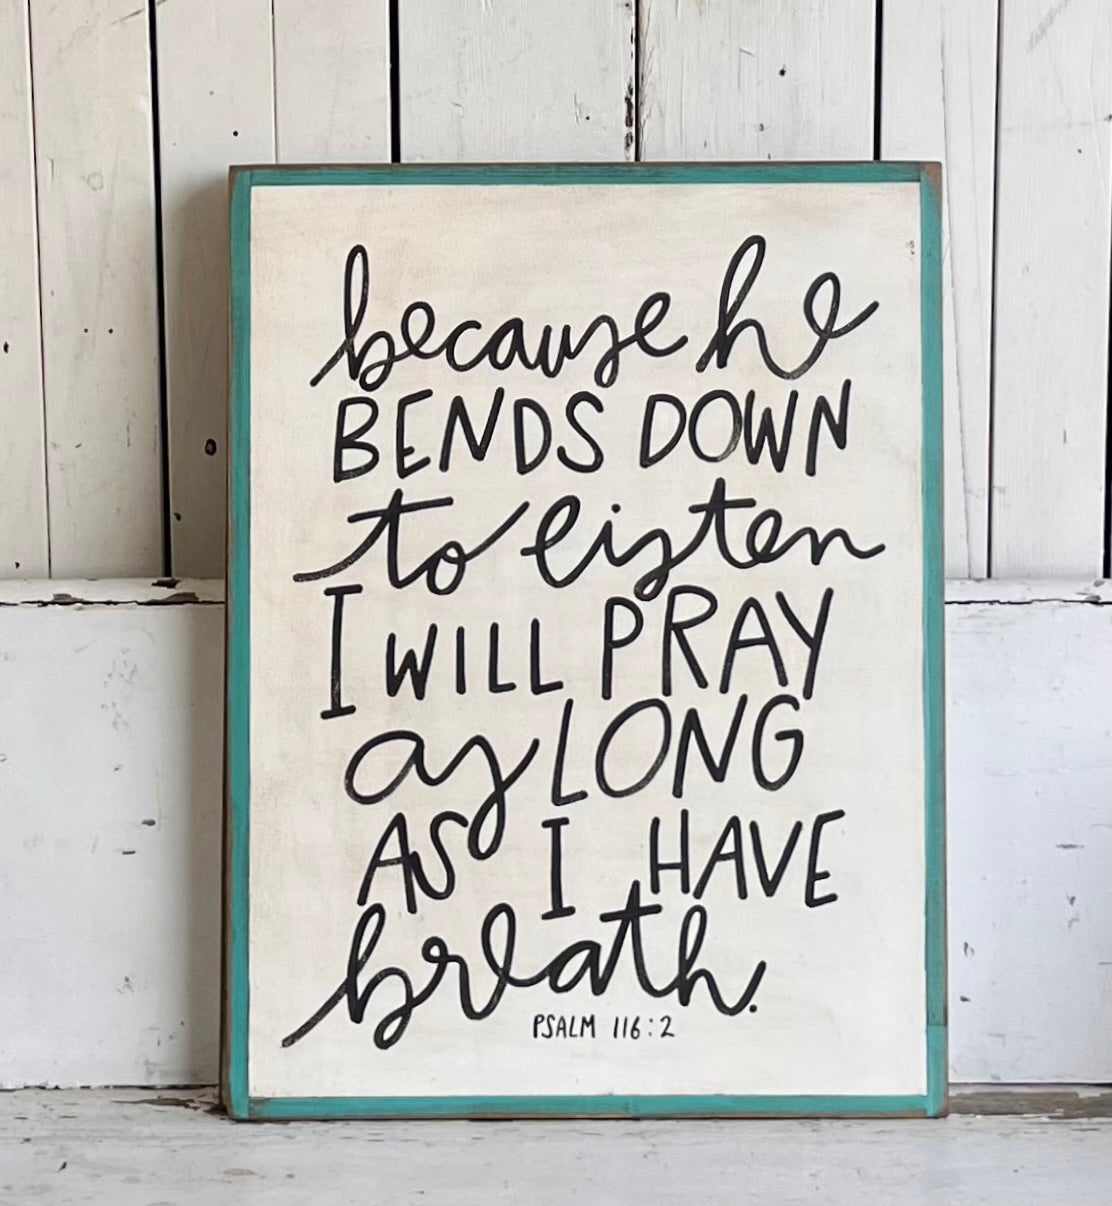 because he
BENDS DOWN
to listen
I WILL PRAY
as LONG
AS I HAVE
breath.
PSALM 116:2